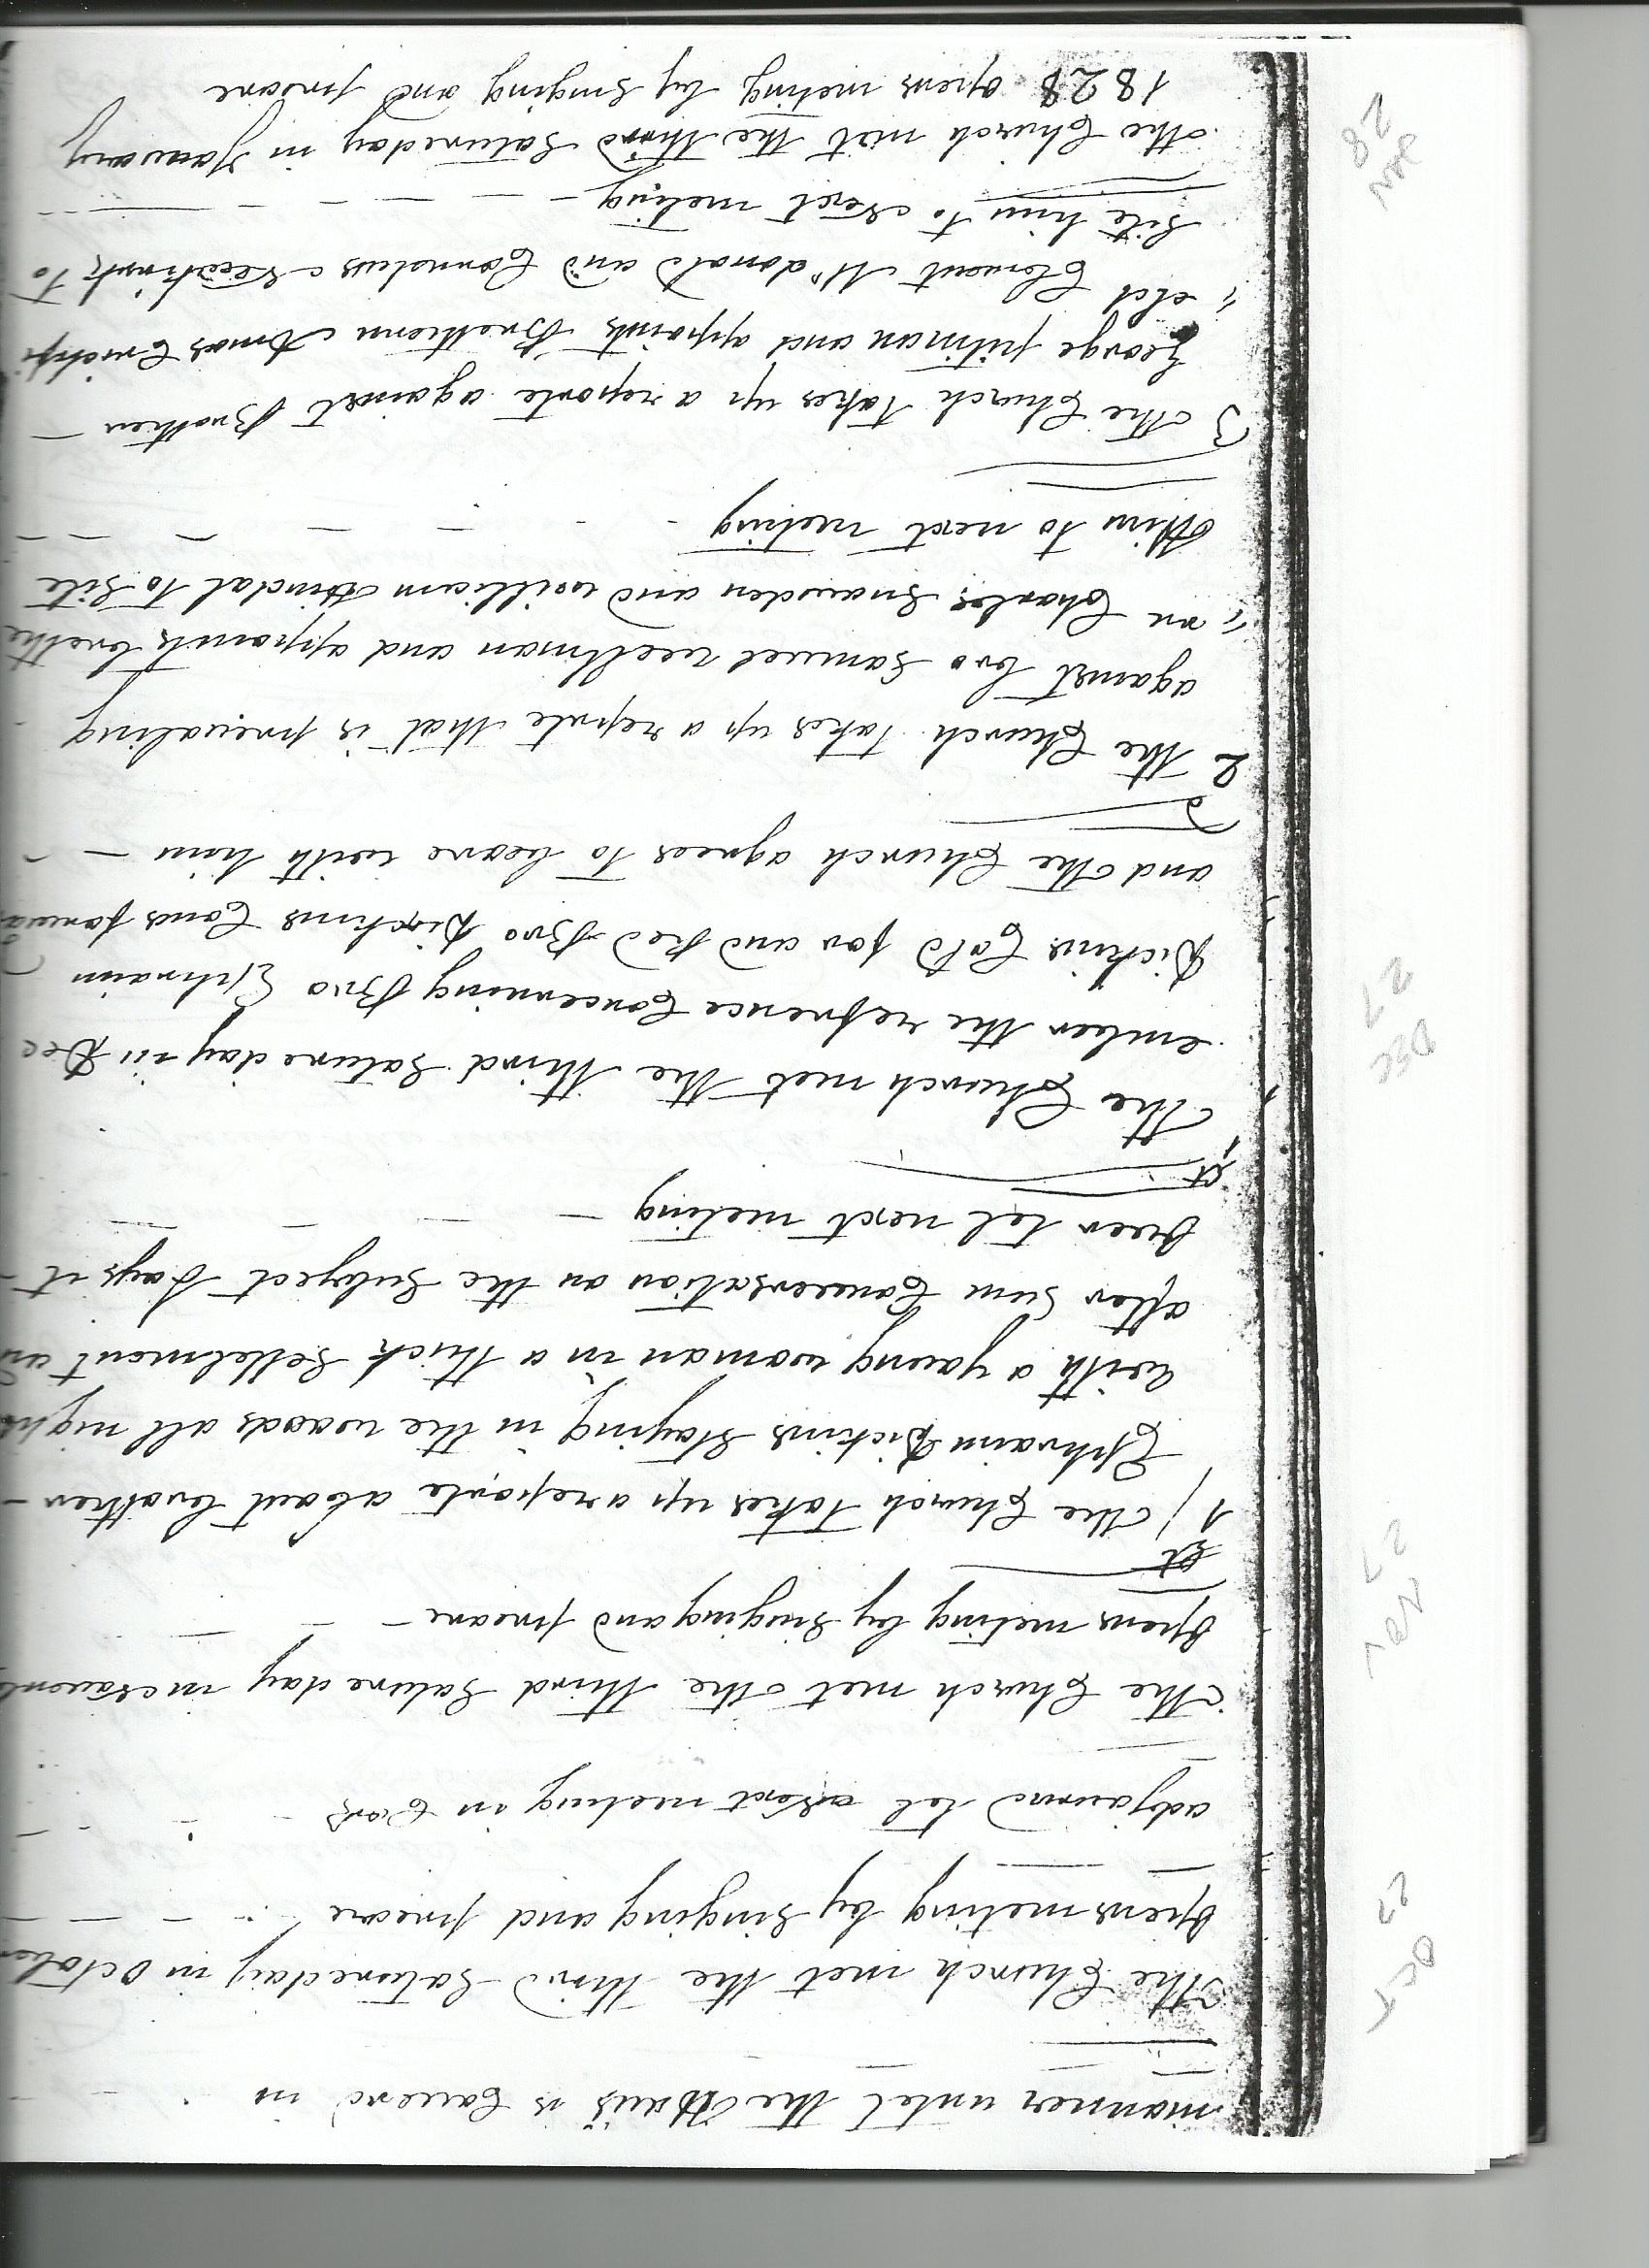 manner untel the Haus is Cauerd in
The Church met the third Satureday in October
Opens meting by Singing and preare
adjournd tel next meeting in Cors
The Church met the third Satureday in
Opens meting by Singing and preare
1st The Church takes up a reporte about brother
Ephraim Dickins Staying in the woods all night
with a young woman in a thick Settelment an
after Sum Conversation on the Subject Lays it
over tel next meeting
1st The Church met the third Satureday in Dec
ember the refrence Concerning Bro Ephraim
Dickins Cald for and Red Bro Dickins Coms forwa
and the Church agrees to beare with him
2d
2 the Church takes up a reporte that is prevealing
against bro Samuel wellman and appoints brethe
ren Charles Snawden and william tindal to Site
Him to next meeting
3 The Church takes up a reporte against Brother
George pitman and appoints Brethern Amos
Clement Mcdonald and Cornelus to
Site him to Next meeting
The Church met the third Satureday in January
1828 opens meting by Singing and preare
OCT
27
NOV
27
DEC
27
JAN
28